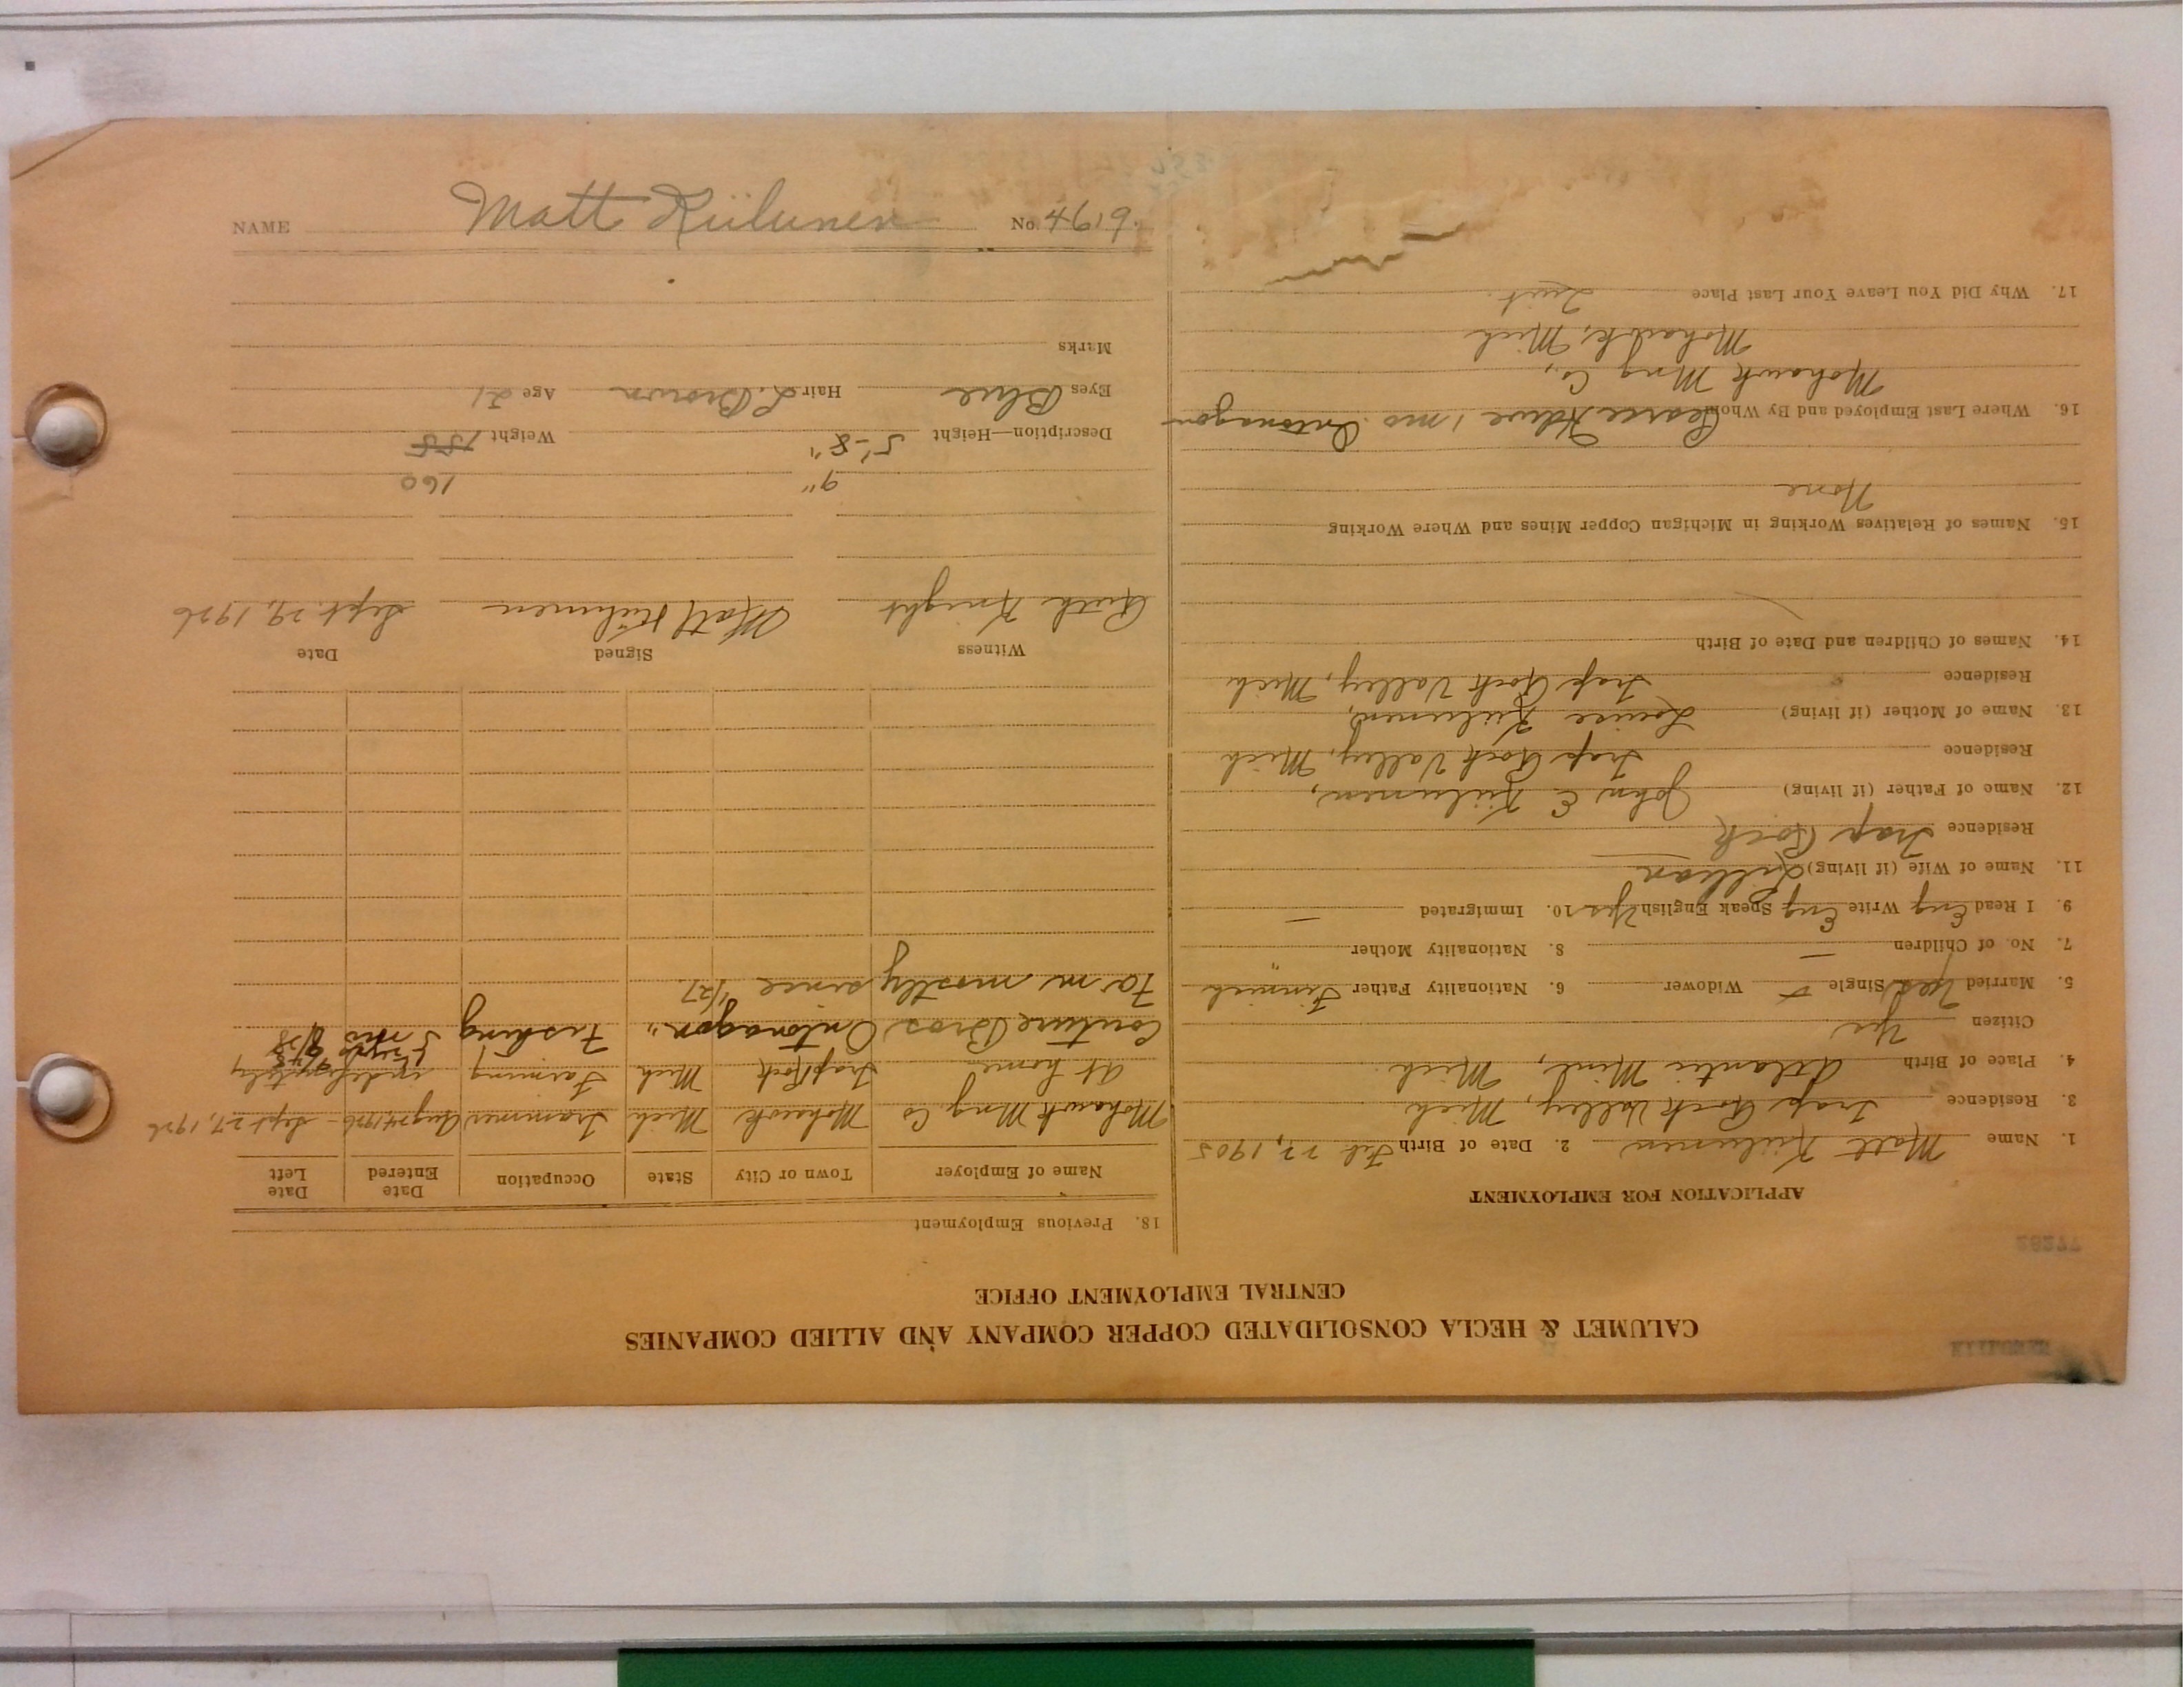 CALUMET & HECLA CONSOLIDATED COPPER COMPANY AND ALLIED COMPANIES
CENTRAL EMPLOYMENT OFFICE
77282
APPLICATION FOR EMPLOYMENT
1. Name Matt Kiilunen 2. Date of Birth Feb 27, 1905
3. Residence Trap Rock Valley, Mich
4. Place of Birth Atlantic Mine, Mich.
Citizen Yes
5. Married Yes Single Widower 6. Nationality Father Finnish
7. No. of Children — 8. Nationality Mother "
9. I Read Eng Write Eng Speak English Yes 10. Immigrated —
11. Name of Wife (if living) Lillian
Residence Trap Rock
12. Name of Father (if living) John E Kiilunen,
Residence Trap Rock Valley, Mich
13. Name of Mother (if living) Louise Kiilunen,
Residence Trap Rock Valley, Mich
14. Names of Children and Date of Birth
15. Names of Relatives Working in Michigan Copper Mines and Where Working
None
16. Where Last Employed and By Whom 1 mo. Ontonagon
Mohawk Mng Co.,
Mohawk, Mich
17. Why Did You Leave Your Last Place Quit.
18. Previous Employment
Name of Employer Town or City State Occupation Date Entered Date Left
Mohawk Mng Co Mohawk Mich Trammer Aug 24, 1926 - Sept 27, 1926
At home Trap Rock Mich Farming indefinitely
Couture Bros Ontonagon " Fishing
Farm mostly since 1/27
Witness Signed Date
Ruth Knight Matt Kiilunen Sept. 29, 1926
9" 160
Description—Height 5'-8" Weight 155
Eyes Blue Hair L. Brown Age 21
Marks
NAME Matt Kiilunen No. 4619.